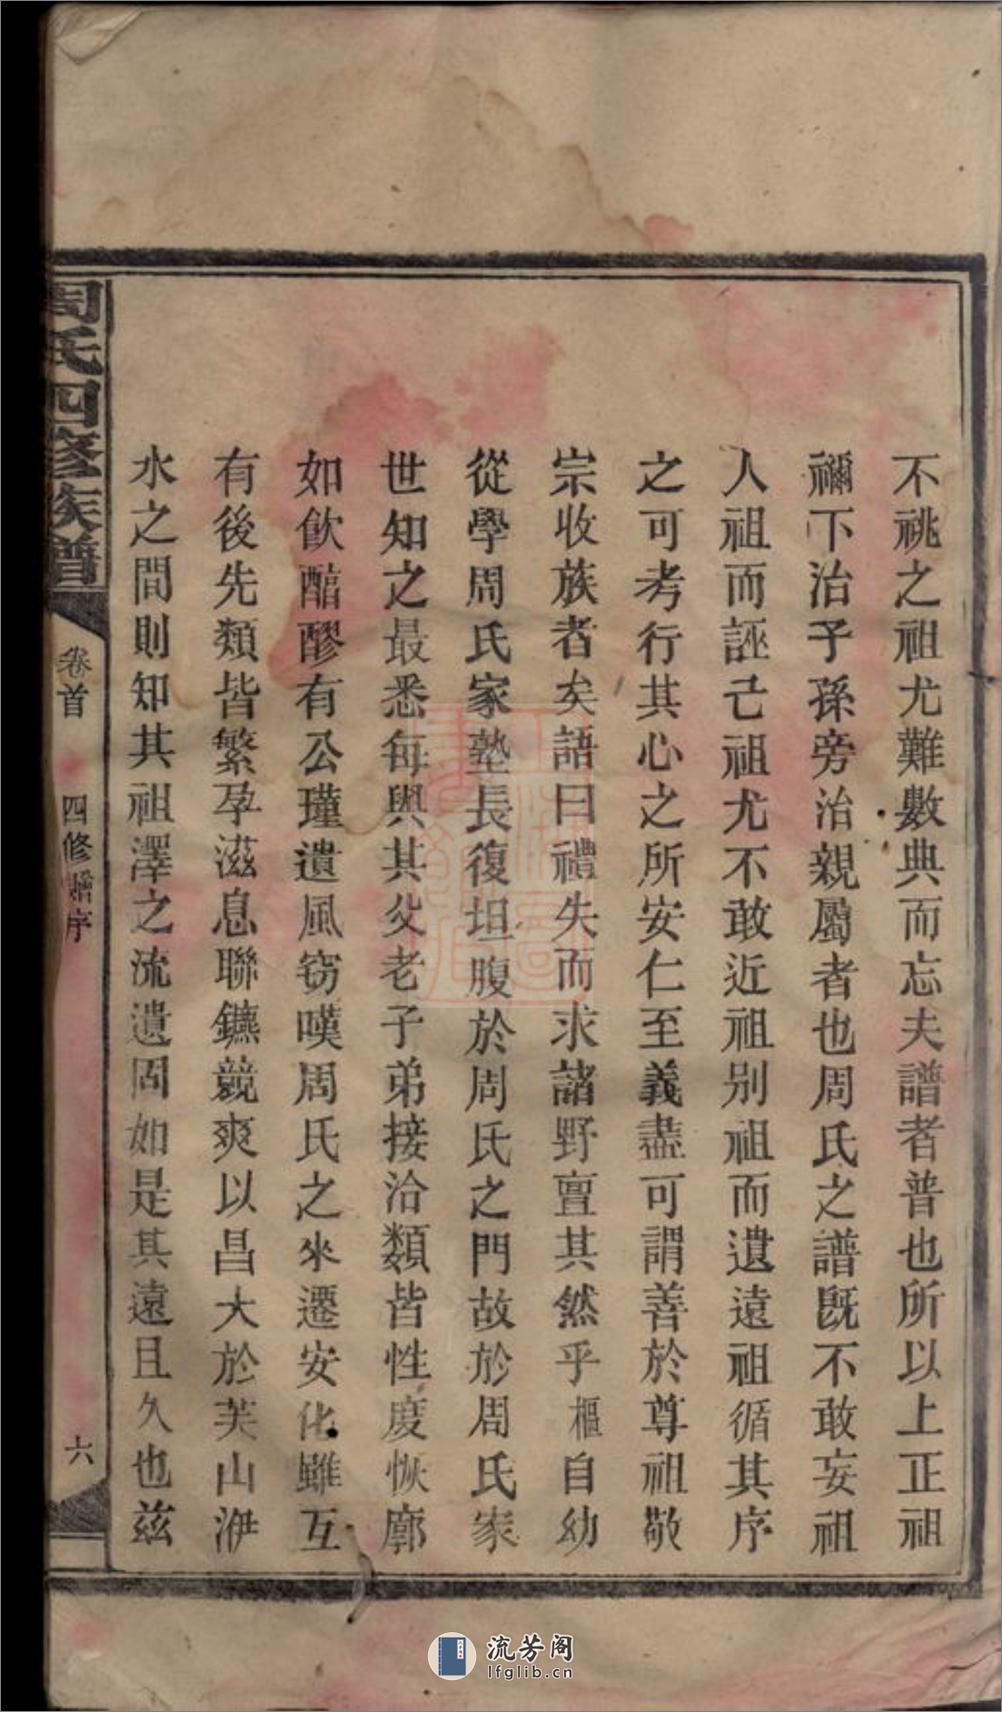 不祧之祖尤難數典而忘夫譜者普也所以上正祖
禰下治子孫旁治親屬者也周氏之譜旣不敢妄祖
人祖而誣己祖尤不敢近祖別祖而遺遠祖循其序
之可考行其心之所安仁至義盡可謂善於尊祖敬
宗收族者矣語曰禮失而求諸野亶其然乎樞自幼
從學周氏家塾長復坦腹於周氏之門故於周氏家
世知之最悉每與其父老子弟接洽類皆性度恢廓
如飲醕醪有公瑾遺風窃嘆周氏之來遷安化雖互
有後先類皆繁孕滋息聯鑣競爽以昌大於芙山洢
水之間則知其祖澤之流遺固如是其遠且久也茲
周氏四修族譜
卷首
四修譜序
六
流芳阁
lfglib.cn